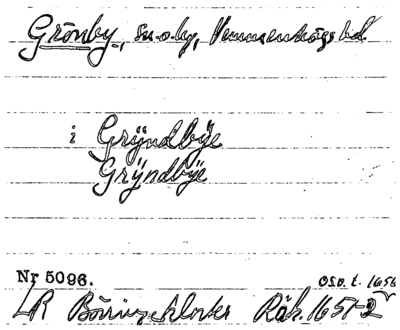 Grönby, sn. o. by, Vemmenhögs hd.
i Grÿndbÿe
Grÿndbÿe
Nr 5096.
Osv. t. 1656
LR Börringekloster Räk. 1651-2